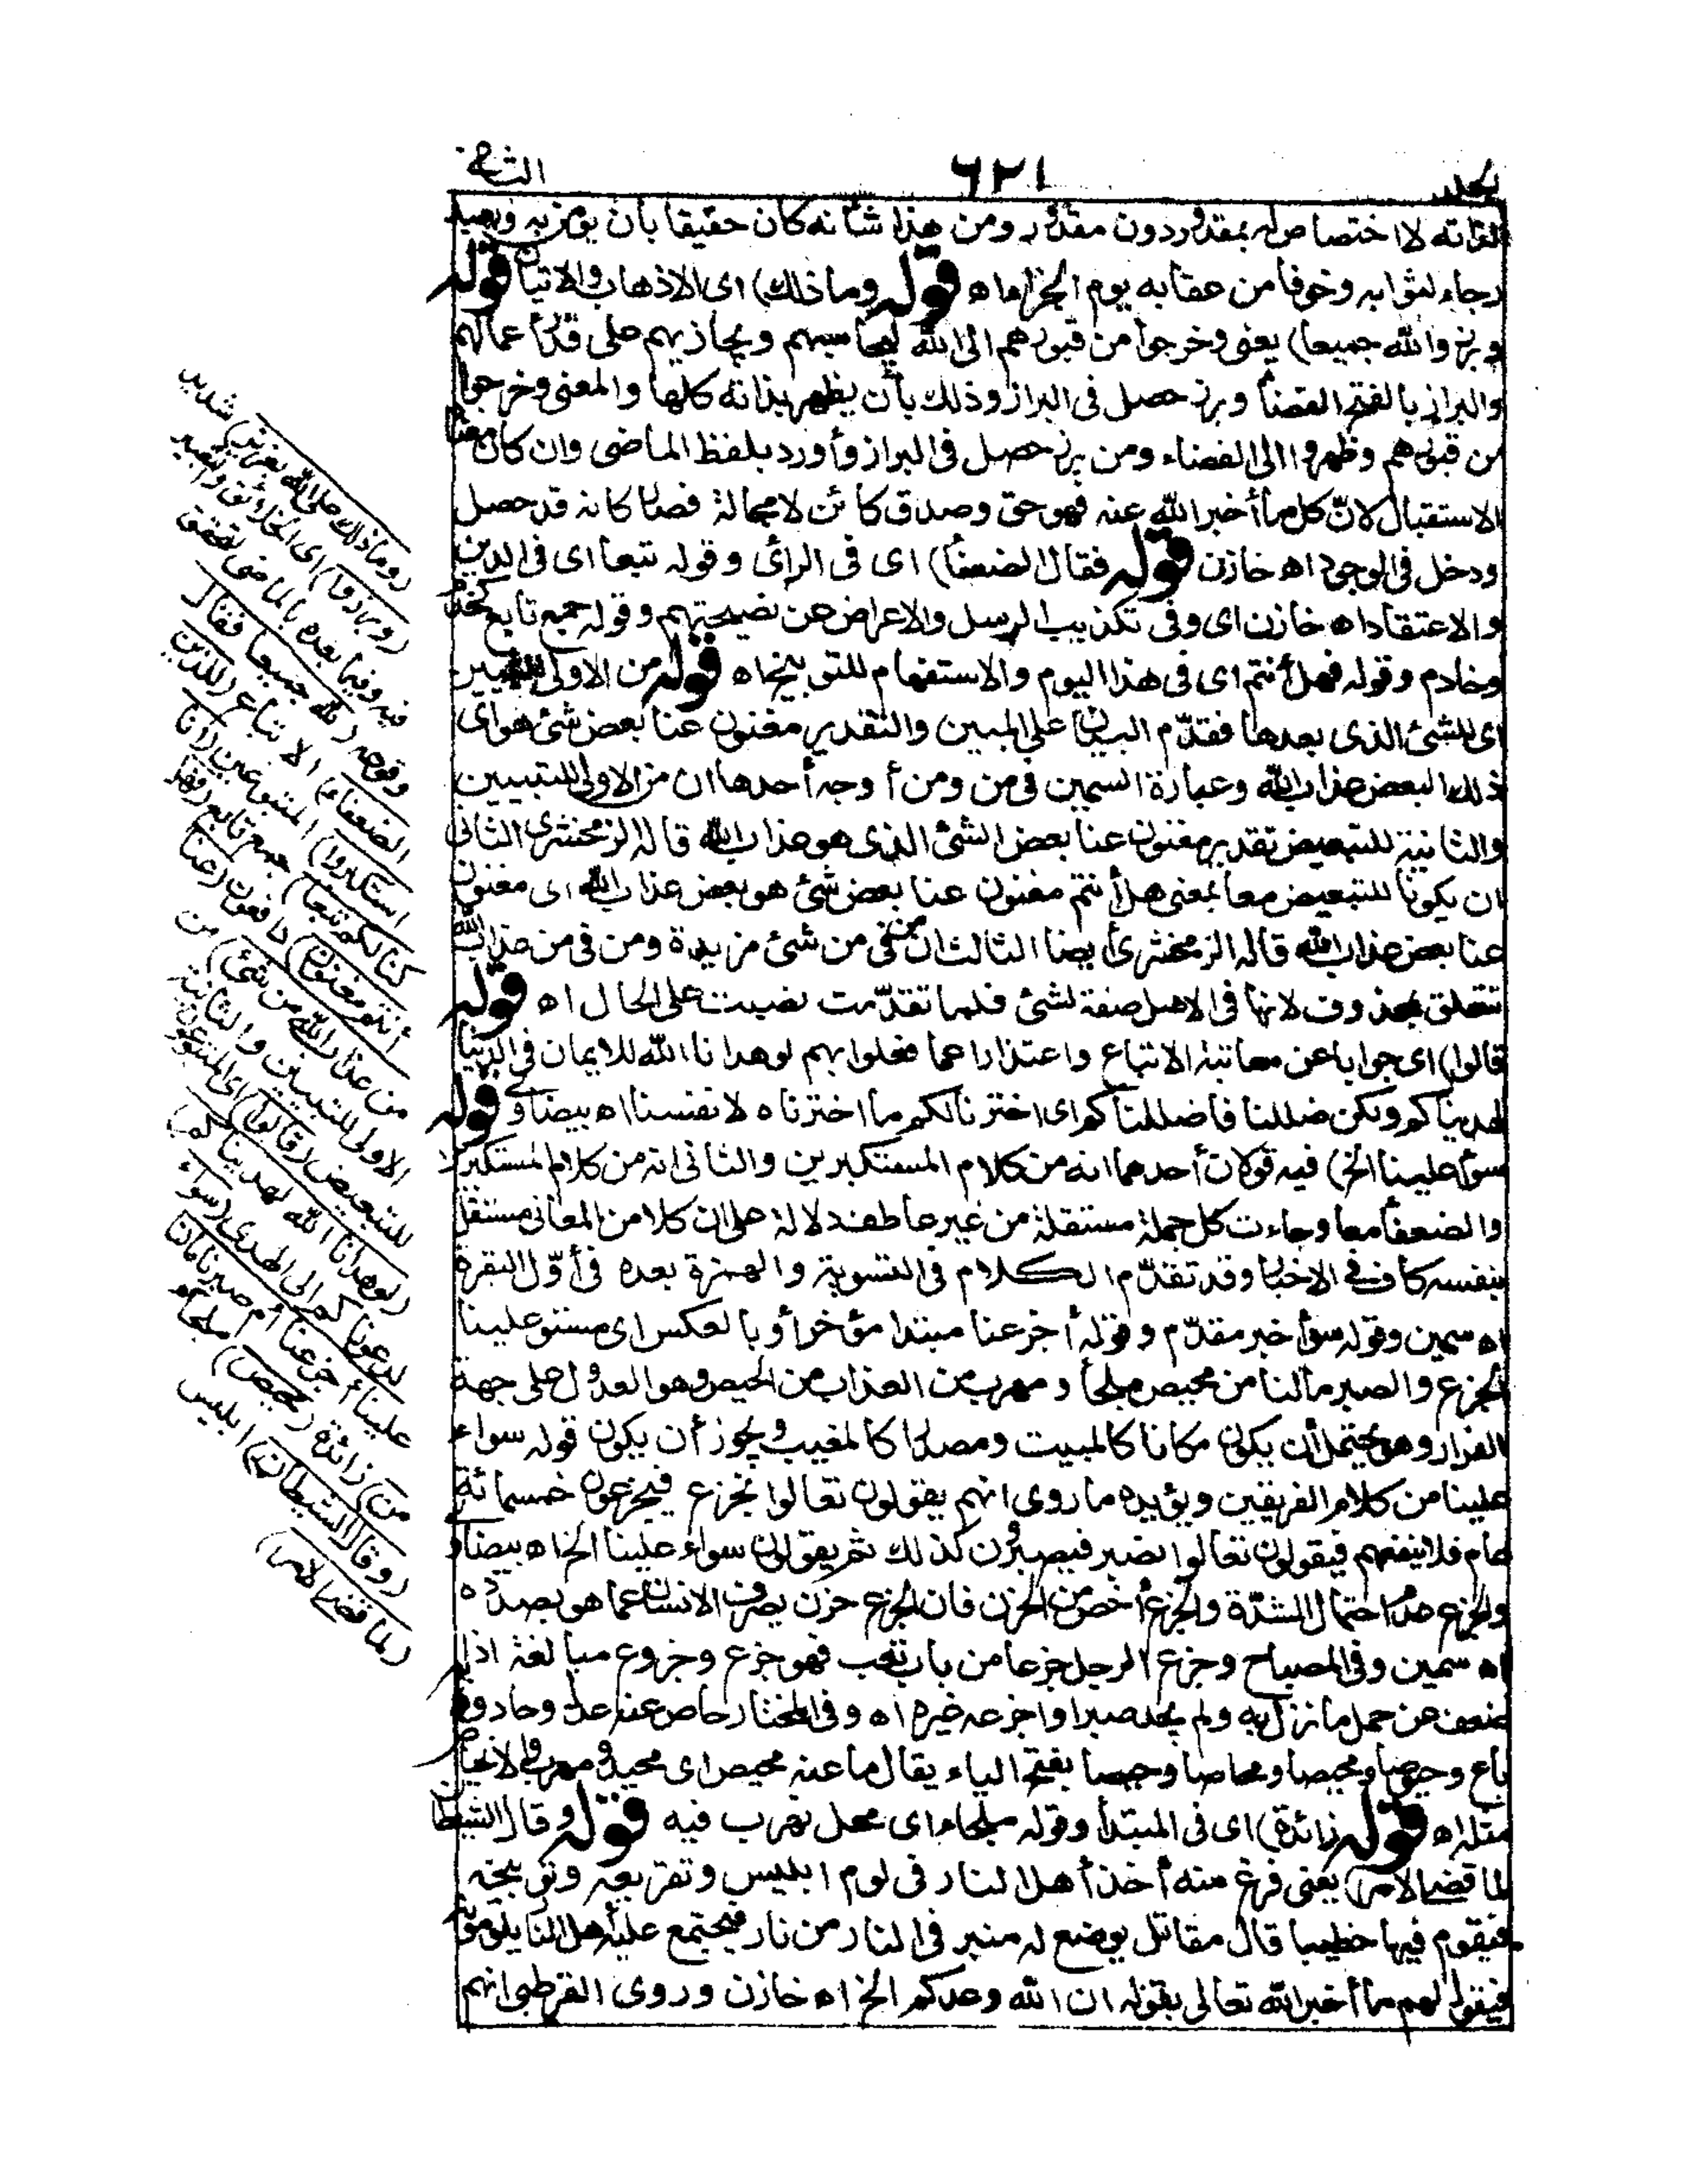 الجلد ٦٢١ الثانى
لذاته لا اختصاص له بمقدور دون مقدور ومن هذا شأنه كان حقيقا بأن يؤمن به ويعبد
رجاء لثوابه وخوفا من عقابه يوم الجزاء اه قوله وما ذلك) اى الاذهاب والاتيان قوله
وبرزوا لله جميعا) يعنى وخرجوا من قبورهم الى الله ليحاسبهم ويجازيهم على قدر أعمالهم
والبراز بالفتح الفضاء وبرز حصل فى البراز وذلك بأن يظهر بذاته كلها والمعنى وخرجوا
من قبورهم وظهروا الى الفضاء ومن برز حصل فى البراز وأورد بلفظ الماضى وان كان معناه
الاستقبال لانّ كل ما أخبر الله عنه فهو حق وصدق كائن لا محالة فصار كانه قد حصل
ودخل فى الوجود اه خازن قوله فقال الضعفأ) اى فى الرأى وقوله تبعا اى فى الدين
والاعتقاد اه خازن اى وفى تكذيب الرسل والاعراض عن نصيحتهم وقوله جمع تابع كخدم
وخادم وقوله فهل أنتم اى فى هذا اليوم والاستفهام للتوبيخ اه قوله من الاولى للتبيين
اى للشئ الذى بعدها فقدّم البيان على المبين والتقدير مغنون عنا بعض شئ هو اى
ذلك البعض عذاب الله وعبارة السمين فى من ومن أوجه أحدها ان من الاولى للتبيين
والثانية للتبعيض تقديره مغنون عنا بعض الشئ الذى هو عذاب الله قاله الزمخشرى الثانى
ان يكونا للتبعيض معا بمعنى هل أنتم مغنون عنا بعض شئ هو بعض عذاب الله اى مغنون
عنا بعض عذاب الله قاله الزمخشرى أيضا الثالث ان من فى من شئ مزيدة ومن فى من عذاب الله
تتعلق بمحذوف لانها فى الاصل صفة لشئ فلما تقدّمت نصبت على الحال اه قوله
قالوا) اى جوابا عن معاتبة الاتباع واعتذارا عما فعلوا بهم لو هدانا الله للايمان فى الدنيا
لهديناكم ولكن ضللنا فأضللناكم اى اخترنا لكم ما اخترناه لانفسنا اه بيضاوى قوله
سوأ علينا الخ) فيه قولان أحدهما انه من كلام المستكبرين والثانى انه من كلام المستكبرين
والضعفأ معا وجاءت كل جملة مستقلة من غير عاطف دلالة على ان كلا من المعانى مستقل
بنفسه كاف فى الاخبار وقد تقدّم الكلام فى التسوية والهمزة بعده فى أوّل البقرة
اه سمين وقوله سوأ خبر مقدّم وقوله أجزعنا مبتدا مؤخر أو بالعكس اى مستو علينا
الجزع والصبر مالنا من محيص ملجأ ومهرب من العذاب من الحيص وهو العدول على جهة
الفرار وهو يحتمل أن يكون مكانا كالمبيت ومصدرا كالمغيب ويجوز أن يكون قوله سواء
علينا من كلام الفريقين ويؤيده ما روى انهم يقولون تعالوا نجزع فيجزعون خمسمائة
عام فلا ينفعهم فيقولون تعالوا نصبر فيصبرون كذلك ثم يقولون سواء علينا الخ اه بيضاوى
والجزع عدم احتمال الشدّة والجزع أخص من الحزن فان الجزع حزن يصرف الانسان عما هو بصدده
اه سمين وفى المصباح وجزع الرجل جزعا من باب تعب فهو جزع وجزوع مبالغة اذا
ضعف عن حمل ما نزل به ولم يجد صبرا وأجزعه غيره اه وفى المختار حاص عنه عدل وحاد وبابه
باع وحيوصا ومحيصا ومحاصا وحيصا بفتح الياء يقال ما عنه محيص اى محيد ومهرب والانحياص
مثله اه قوله زائدة) اى فى المبتدأ وقوله ملجاء اى محل نهرب فيه قوله وقال الشيطان
لما قضى الامر) يعنى فرغ منه أخذ أهل النار فى لوم ابليس وتقريعه وتوبيخه
فيقوم فيها خطيبا قال مقاتل يوضع له منبر فى النار من نار فيجتمع عليه أهل النار يلومونه
فيقول لهم ما أخبر الله تعالى بقوله ان الله وعدكم الخ اه خازن وروى القرطبى انهم
(وما ذلك على الله بعزيز) شديد
(وبرزوا) اى الخلائق والتعبير
فيه وفيما بعده بالماضى لتحقق
وقوعه (لله جميعا فقال
الضعفاء) الاتباع (للذين
استكبروا) المتبوعين (انا
كنا لكم تبعا) جمع تابع (فهل
أنتم مغنون) دافعون (عنا
من عذاب الله من شئ) من
الاولى للتبيين والثانية
للتبعيض (قالوا) اى المتبوعون
(لو هدانا الله لهديناكم)
لدعوناكم الى الهدى (سواء
علينا أجزعنا أم صبرنا مالنا
من) زائدة (محيص) ملجأ
(وقال الشيطان) ابليس
(لما قضى الامر)